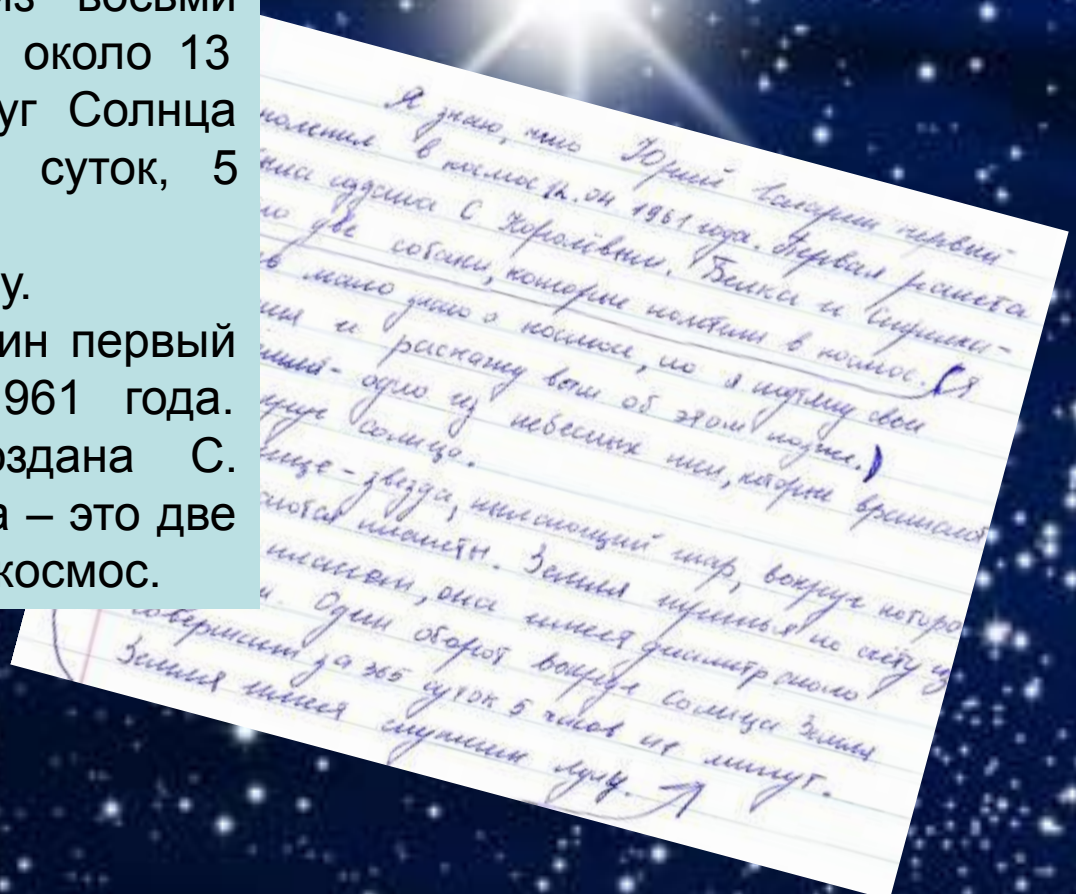 из восьми
около 13
уг Солнца
суток, 5
у.
ин первый
961 года.
оздана С.
а – это две
космос.
Я знаю, что Юрий Гагарин первый
полетел в космос 12. 04 1961 года. Первая ракета
создана С Королёвым. Белка и Стрелка-
о две собаки, которые полетели в космос. (Я
мало знаю о космосе, но я изучу свои
и раскажу вам об этом позже.)
одно из небесных тел, которые вращают
солнца.
звезда, пылающий шар, вокруг которо
планеты. Земля третья по счёту из
планет, она имеет диаметр около
Один оборот вокруг солнца Земля
совершает за 365 суток 5 часов 48 минут.
Земля имеет спутник Луну.